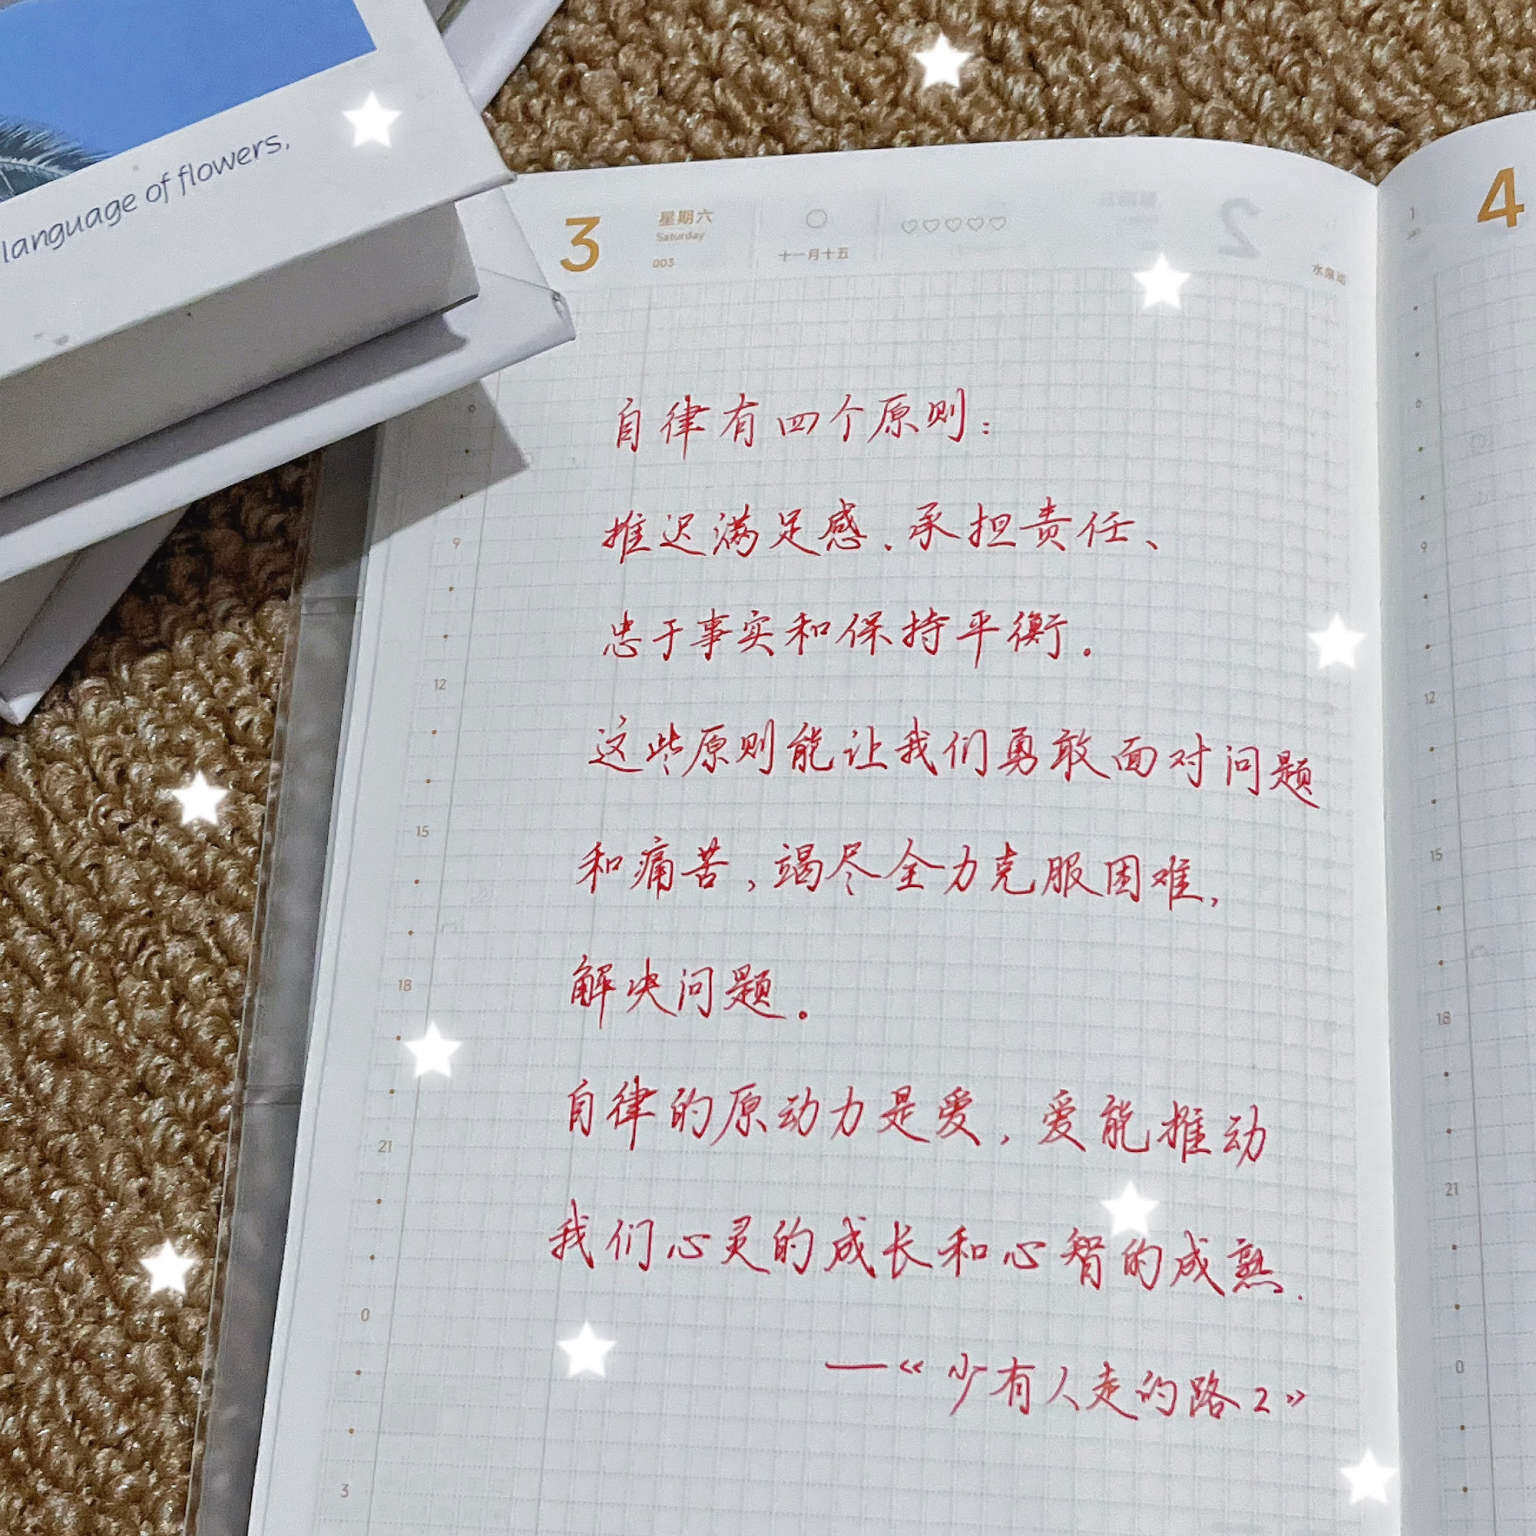 language of flowers.
3
星期六
Saturday
003
十一月十五
2
4
自律有四个原则：
推迟满足感、承担责任、
忠于事实和保持平衡。
这些原则能让我们勇敢面对问题
和痛苦，竭尽全力克服困难，
解决问题。
自律的原动力是爱，爱能推动
我们心灵的成长和心智的成熟.
—《少有人走的路2》
9
12
15
18
21
0
3
6
9
12
15
18
21
0